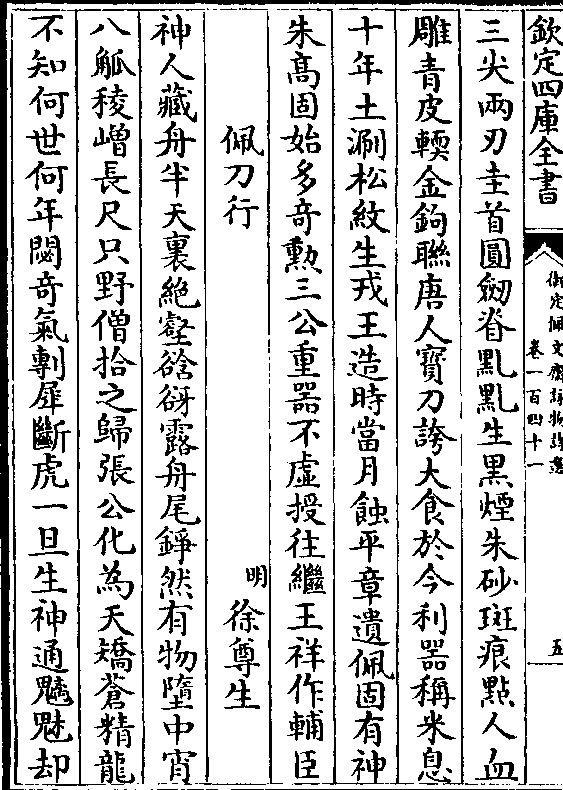 欽定四庫全書
御定佩文齋詠物詩選
卷一百四十一
五
三尖兩刃圭首圓劒脊㸃㸃生黒煙朱砂斑痕點人血
雕青皮輭金鉤聯唐人寶刀誇大食於今利器稱米息
十年土涮松紋生戎王造時當月蝕平章遺佩固有神
朱髙固始多奇勲三公重器不虚授往繼王祥作輔臣
佩刀行
明 徐尊生
神人藏舟半天裏絶壑谽谺露舟尾錚然有物墮中宵
八觚稜嶒長尺只野僧拾之歸張公化為天矯蒼精龍
不知何世何年閟奇氣剸犀斷虎一旦生神通魑魅却